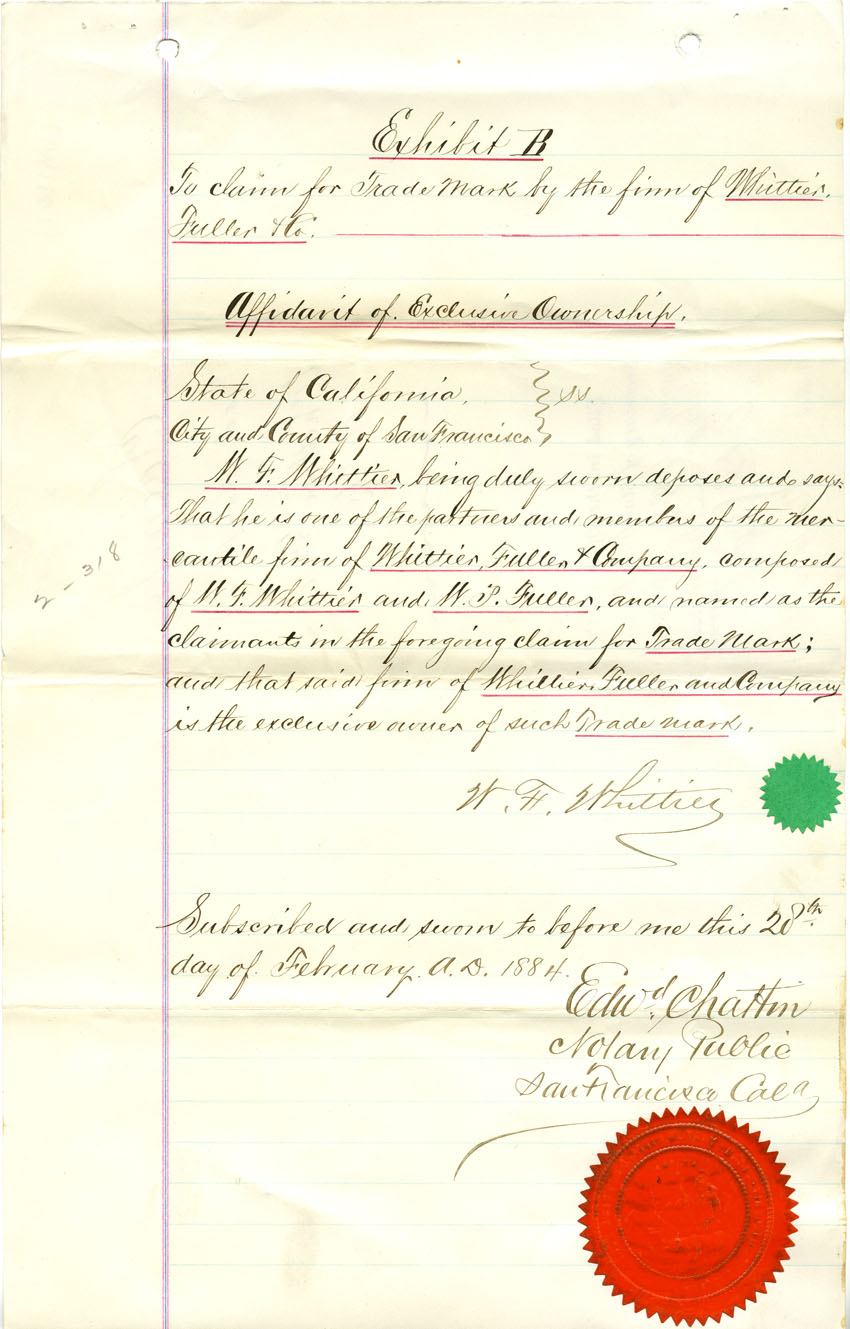 Exhibit B
To claim for Trade Mark by the firm of Whittier,
Fuller & Co.
Affidavit of Exclusive Ownership.
State of California,
ss.
City and County of San Francisco
W. F. Whittier, being duly sworn deposes and says:
That he is one of the partners and members of the mer-
cantile firm of Whittier, Fuller & Company, composed
of W. F. Whittier and W. P. Fuller, and named as the
claimants in the foregoing claim for Trade Mark;
and that said firm of Whittier, Fuller and Company
is the exclusive owner of such Trade mark.
2-318
W. F. Whittier
Subscribed and sworn to before me this 28th
day of February A.D. 1884.
Edwd. Chattin
Notary Public
San Francisco Cala